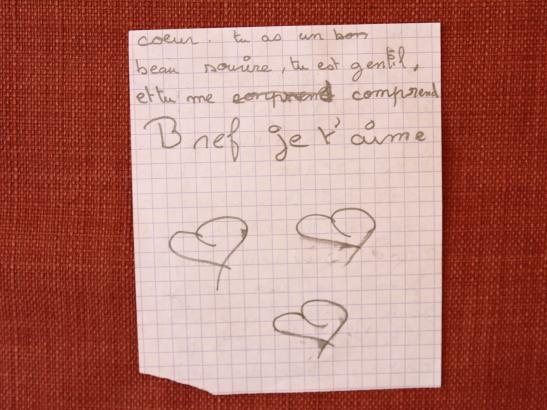 coeur. tu as un bon
beau sourire, tu est gentil,
et tu me comprend comprend
Bref je t'aime